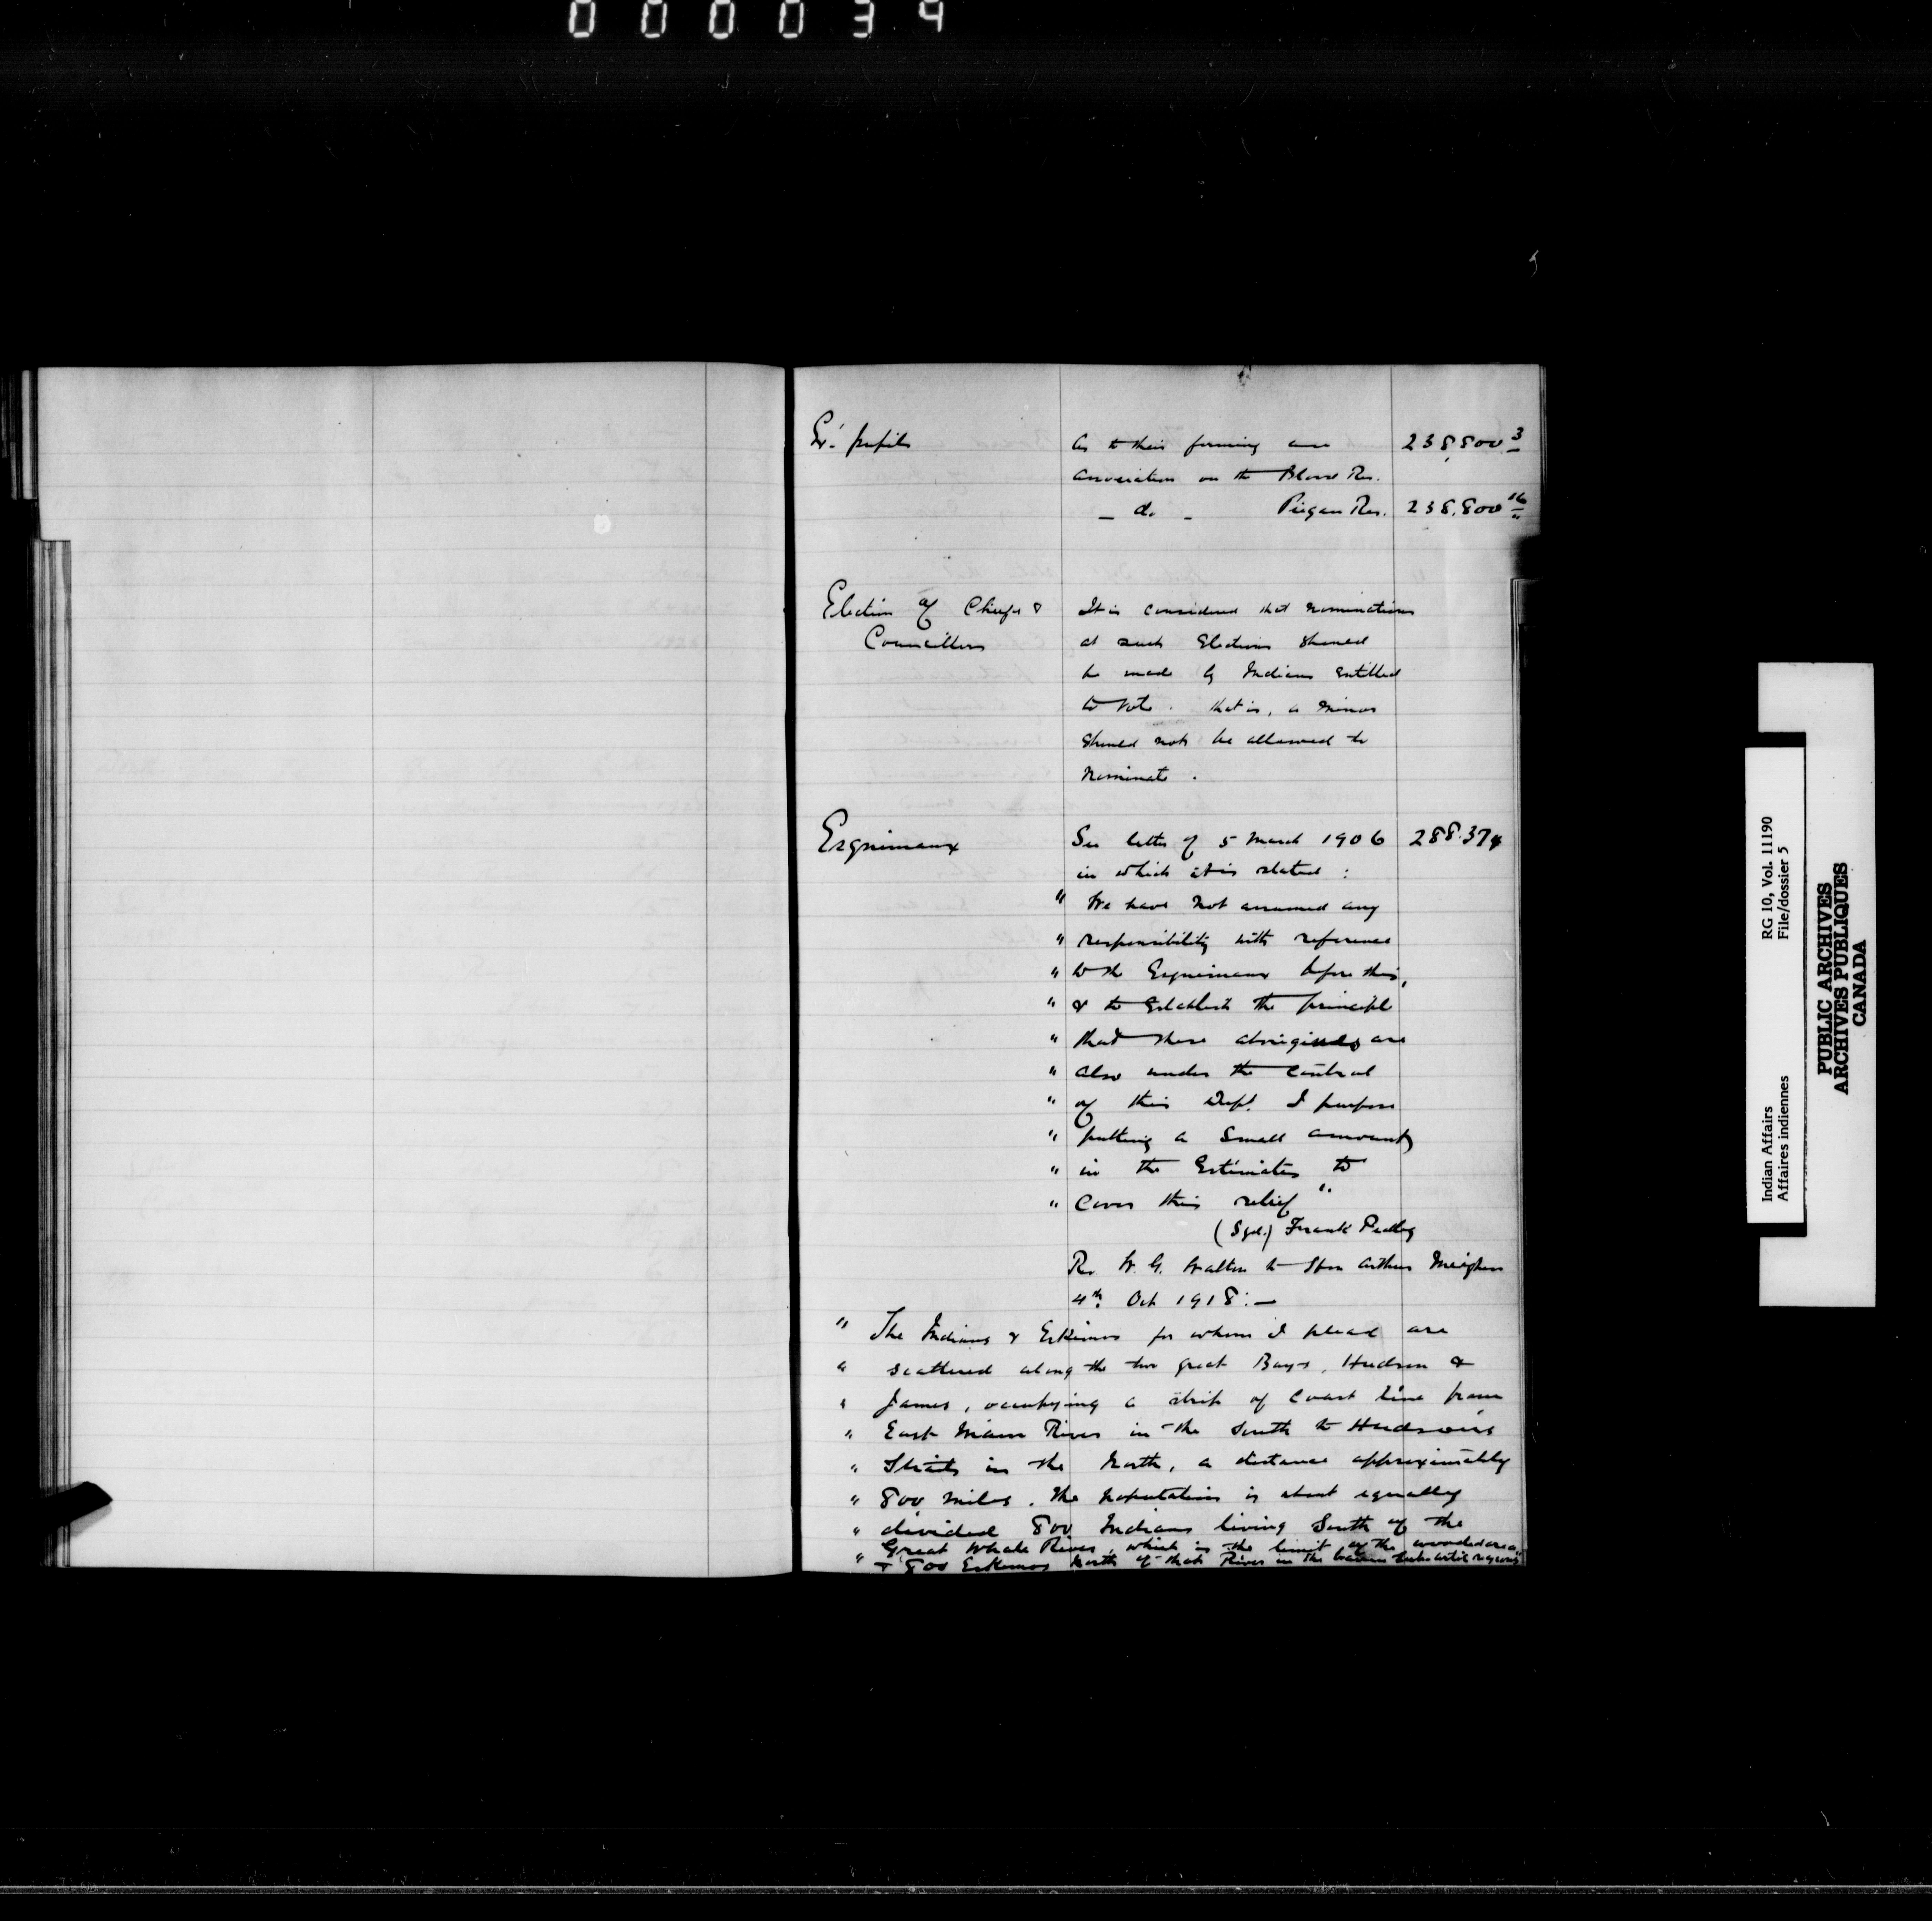 000034
Ex. pupils
As to their forming an 238,800 3
association on the Blood Res.
- do - Piegan Res. 238,800 16
Election of Chiefs &
Councillors
It is considered that nominations
at such Elections should
be made by Indians entitled
to vote. that is, a minor
should not be allowed to
nominate.
Esquimaux
See letter of 5 March 1906 288.374
in which it is stated:
" We have not assumed any
" responsibility with reference
" to the Esquimaux before this,
" & to establish the principle
" that these aborigines are
" also under the control
" of this Dept. I purpose
" putting a small amount
" in the Estimates to
" cover this relief "
(Sgd.) Frank Pedley
Rev. W. G. Walton to Hon Arthur Meighen
4th Oct 1918:—
" The Indians & Eskimos for whom I plead are
" scattered along the two great Bays, Hudson &
" James, occupying a strip of coast line from
" East Main River in the South to Hudson's
" Straits in the North, a distance approximately
" 800 miles. The population is about equally
" divided 800 Indians living South of the
" Great Whale River, which is the limit of the wooded area
" & 800 Eskimos North of that River in the barren sub-arctic regions"
Indian Affairs RG 10, Vol. 11190
Affaires indiennes File/dossier 5
PUBLIC ARCHIVES
ARCHIVES PUBLIQUES
CANADA